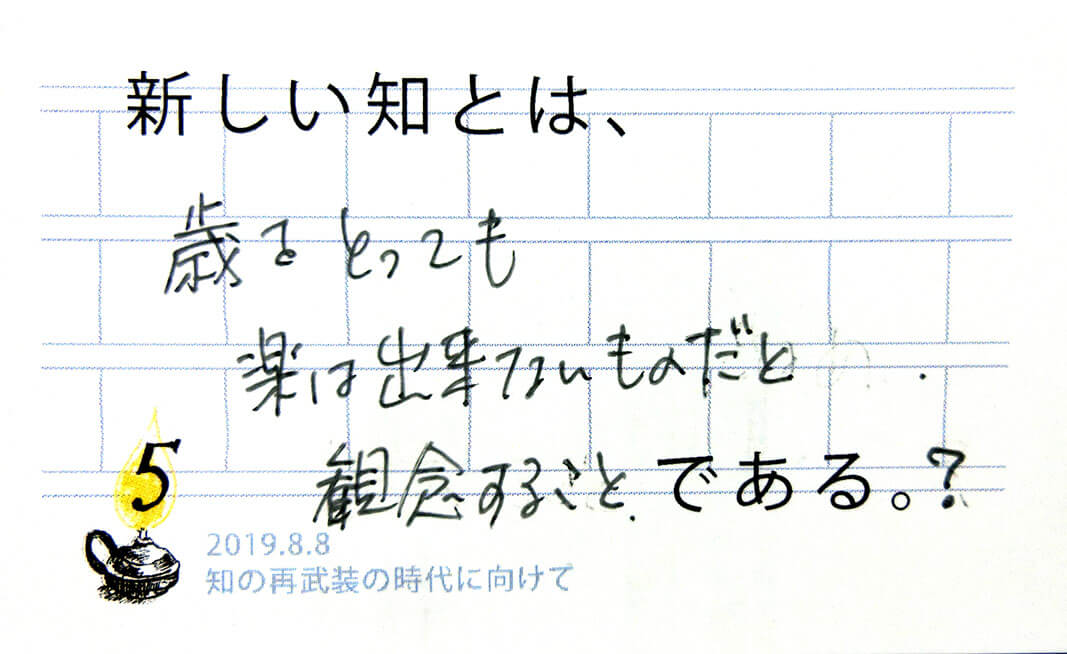 新しい知とは、
歳をとっても
楽は出来ないものだと
観念すること である。?
5
2019.8.8
知の再武装の時代に向けて